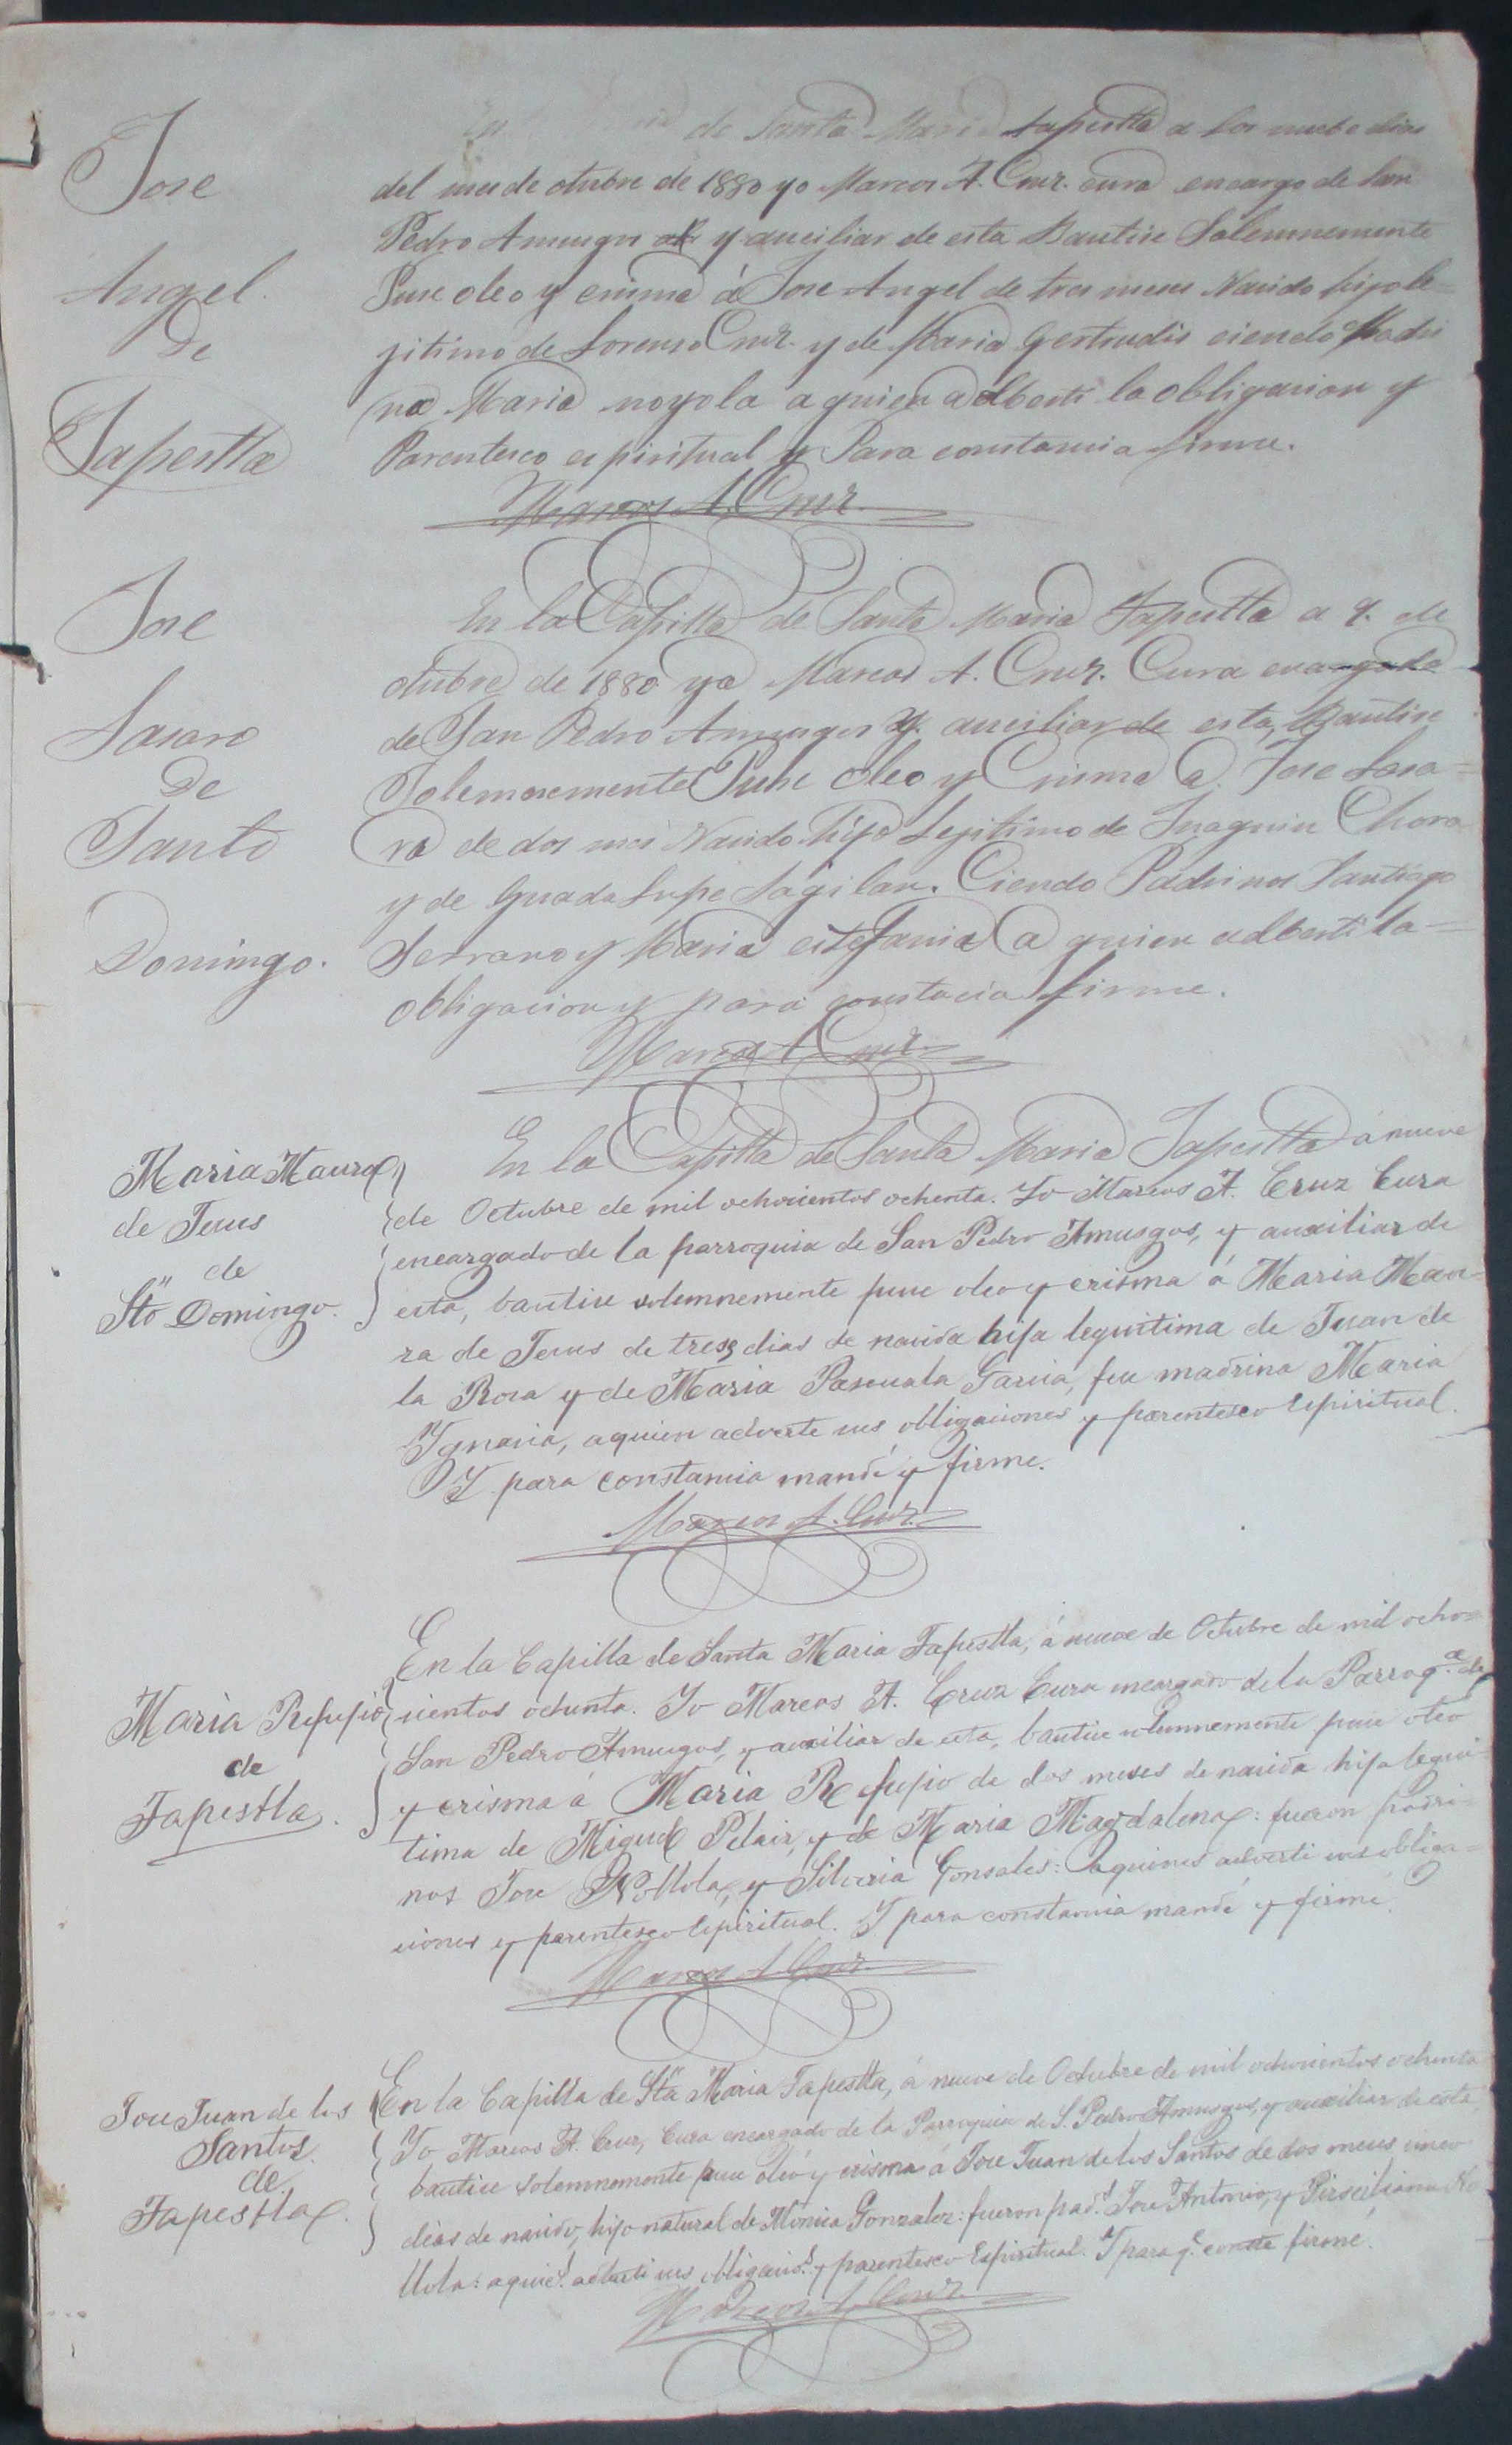 Jose
Angel.
De
Tapestla
de Santa Maria Tapestla a los nuebe dias
del mes de otubre de 1880 yo Marcos A. Cruz. cura encargo de San
Pedro Amusgos y auciliar de esta Bautise Solemnemente
Puse oleo y crisma á Jose Angel de tres meses Nasido hijo le=
jitimo de Lorenso Cruz. y de Maria Gertrudis ciendo Madri
na Maria noyola a quien adberti la obligasion y
Parentesco espiritual y Para constansia firme.
Marcos A. Cruz.
Jose
Lasaro
De
Santo
Domingo.
En la Capilla de Santa Maria Tapestla a 9. de
otubre de 1880 yo Marcos A. Cruz. Cura encargado
de San Pedro Amusgos y. auciliar de esta, Bautise
Solemnemente Puse oleo y Crisma a Jose Lasa=
ro de dos mes Nasido hijo Lejitimo de Juaquin Chora
y de Guadalupe Lagilar. Ciendo Padrinos Santiago
Serrano y Maria estefania a quien adberti la=
obligacion y para constacia firme.
Marcos A Cruz
Maria Maura
de Jesus
de
Sto Domingo.
En la Capilla de Santa Maria Tapestla á nueve
de Octubre de mil ochocientos ochenta. Yo Marcos A. Cruz Cura
encargado de la parroquia de San Pedro Amusgos, y auxiliar de
esta, bautise solemnemente puse oleo y crisma á Maria Mau=
ra de Jesus de trese dias de nasida hija leguitima de Juan de
la Rosa y de Maria Pascuala Garcia, fue madrina Maria
Ygnacia, aquien adverte sus obligaciones y parentesco Espiritual.
Y para constancia mandé y firme.
Marcos A. Cruz.
Maria Refujio
de
Tapestla.
En la Capilla de Santa Maria Tapestla, á nueve de Octubre de mil ocho=
cientos ochenta. Yo Marcos A. Cruz Cura encargado de la Parroq.a de
San Pedro Amusgos, y auxiliar de esta, bautise solemnemente puse oleo
y crisma á Maria Refujio de dos meses de nasida hija legui=
tima de Miguel Pelais, y de Maria Magdalena: fueron padri=
nos Jose Nollola, y Silveria Gonsales: aquines adverti sus obliga=
ciones y parentesco Espiritual. Y para constancia mandé y firmé.
Marcos A. Cruz
Jose Juan de los
Santos.
de
Tapestla.
En la Capilla de Sta Maria Tapestla, á nueve de Octubre de mil ochocientos ochenta
Yo Marcos A. Cruz, Cura encargado de la Parroquia de S. Pedro Amusgos, y auxiliar de esta,
bautise solemnemente puse oleo y crisma á Jose Juan de los Santos de dos meses cinco
dias de nasido, hijo natural de Mónica Gonzalez: fueron pad.s Jose Antonio, y Pirsciliana No
llola: aquie.s adverti sus obligacio.s y parentesco Espiritual. Y para q.e conste firmé.
Marcos A. Cruz